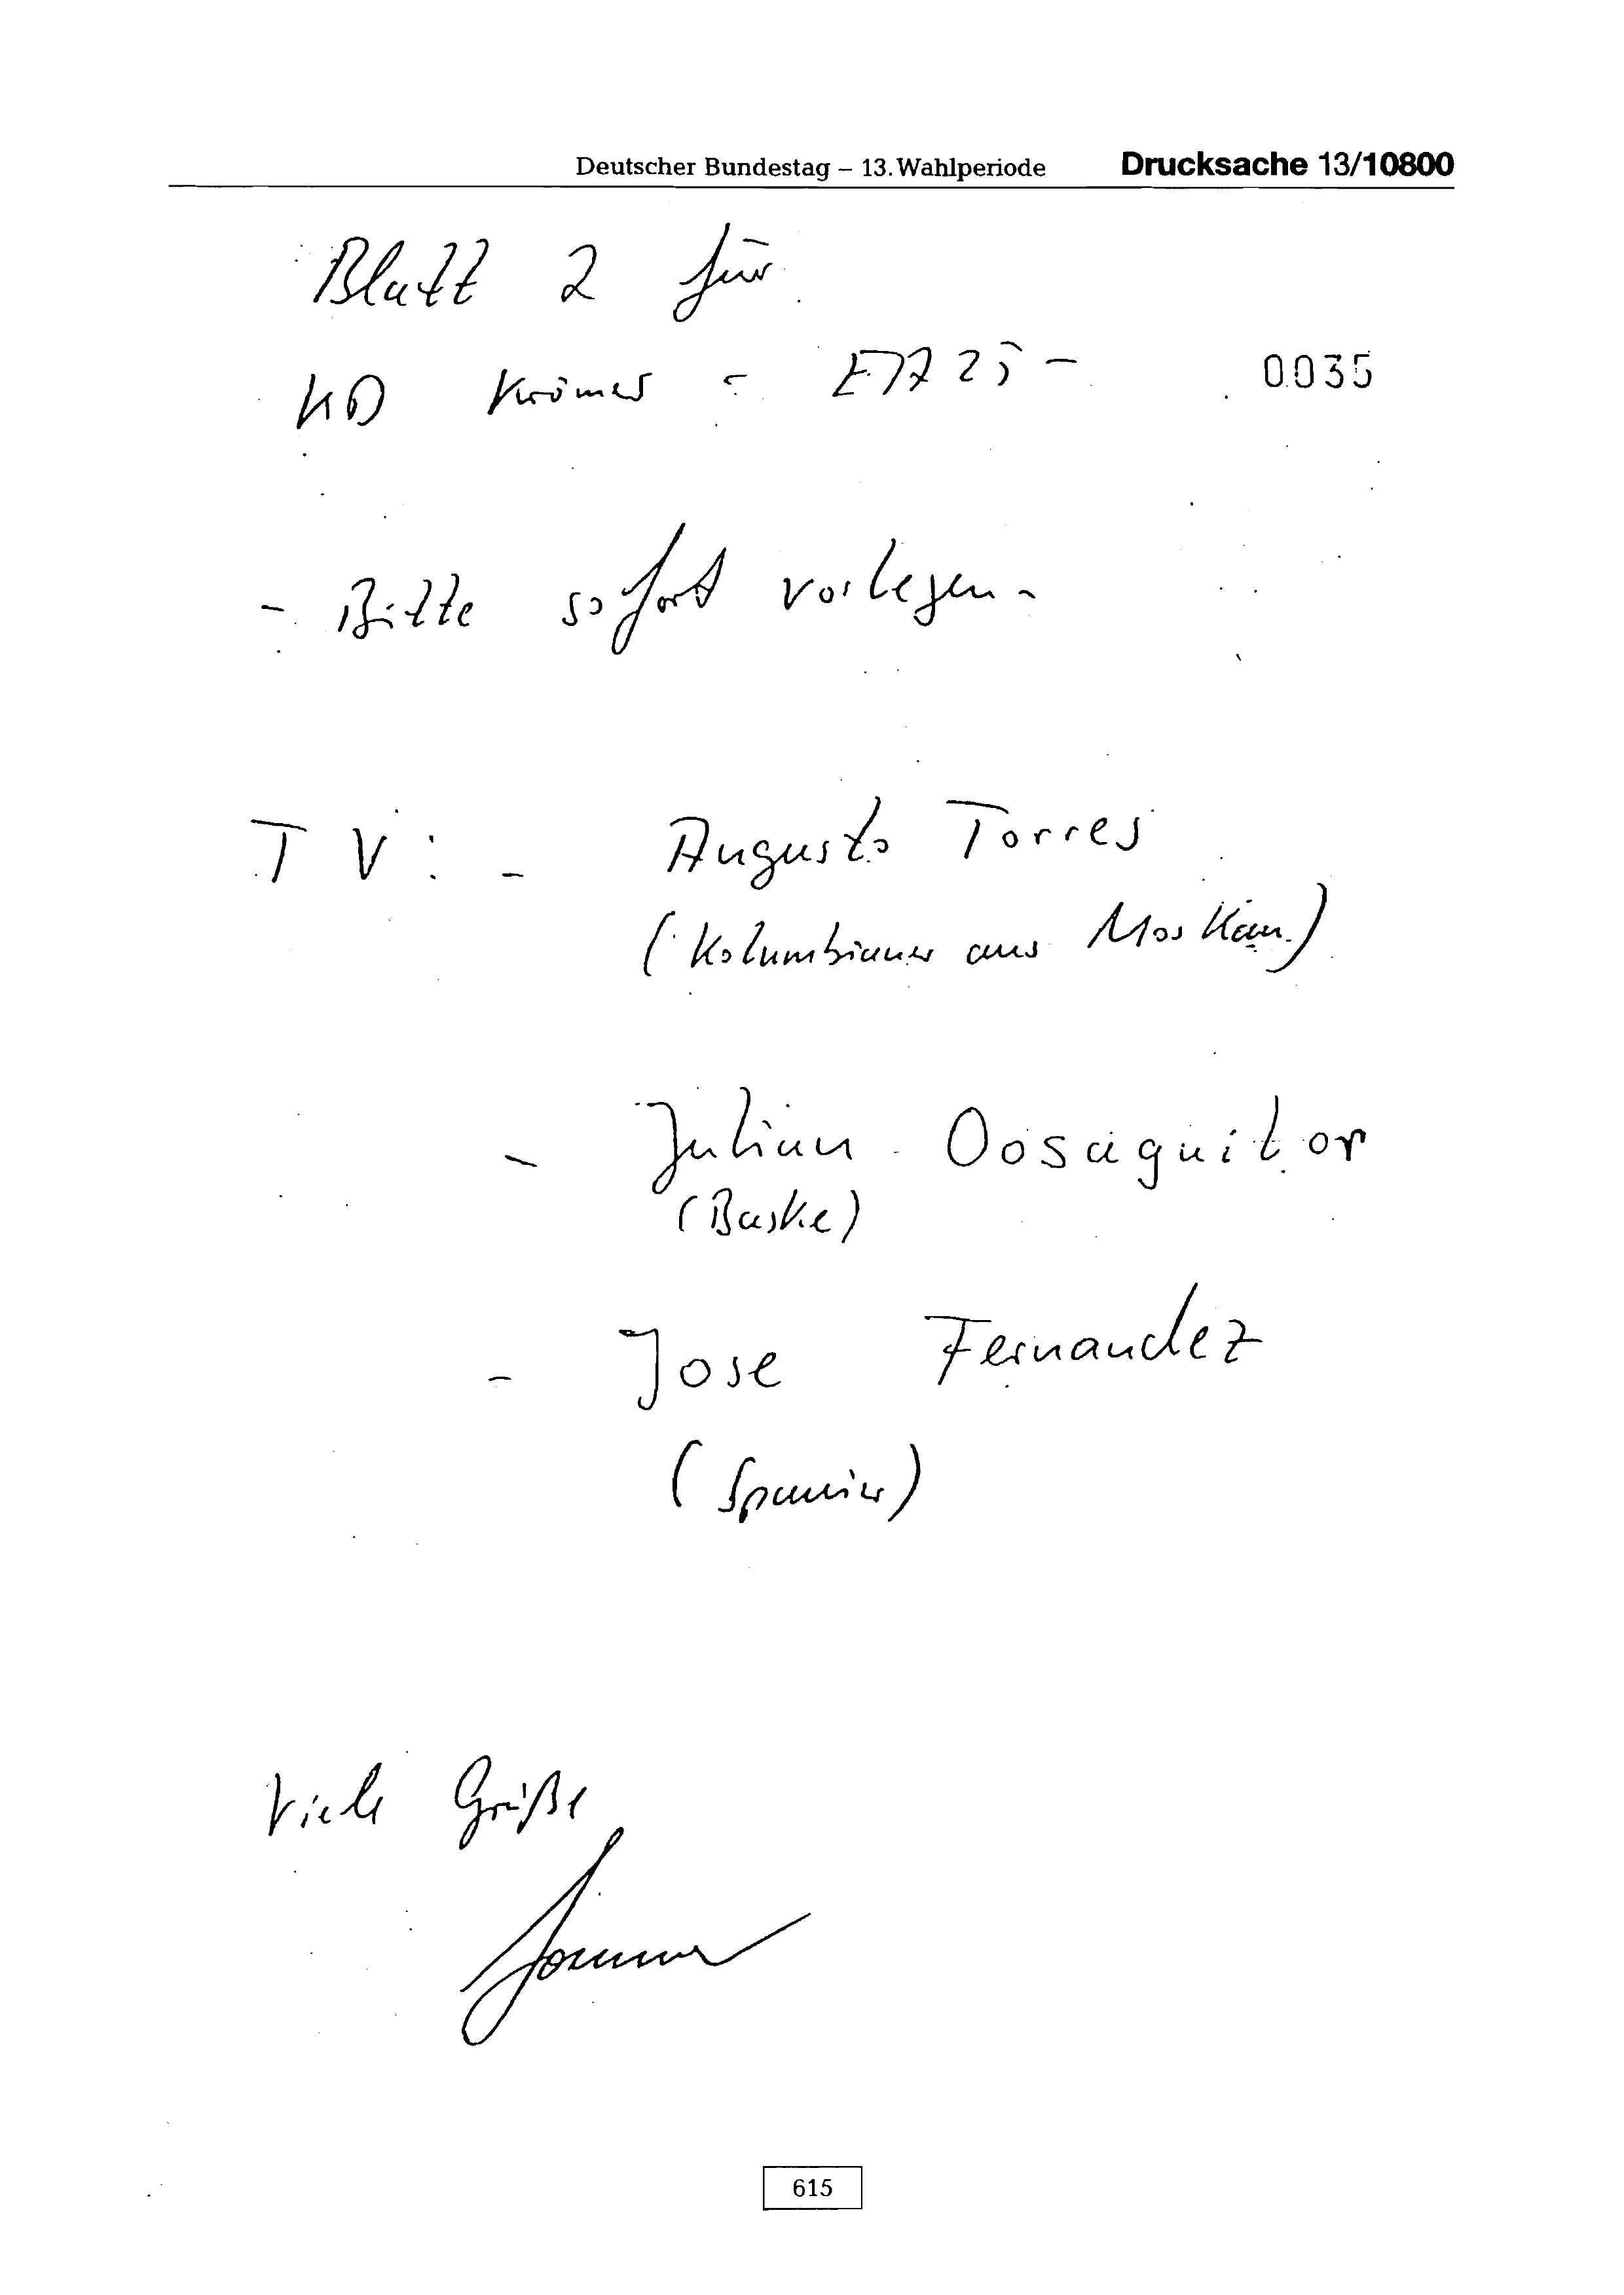 Deutscher Bundestag – 13. Wahlperiode Drucksache 13/10800
Blatt 2 für
KD Krömer - EA 25 - 0035
- Bitte sofort vorlegen -
TV: - Augusto Torres
(Kolumbianer aus Moskau)
- Julian Oosaguitor
(Baske)
- Jose Fernandez
(Spanier)
Viele Grüße
615